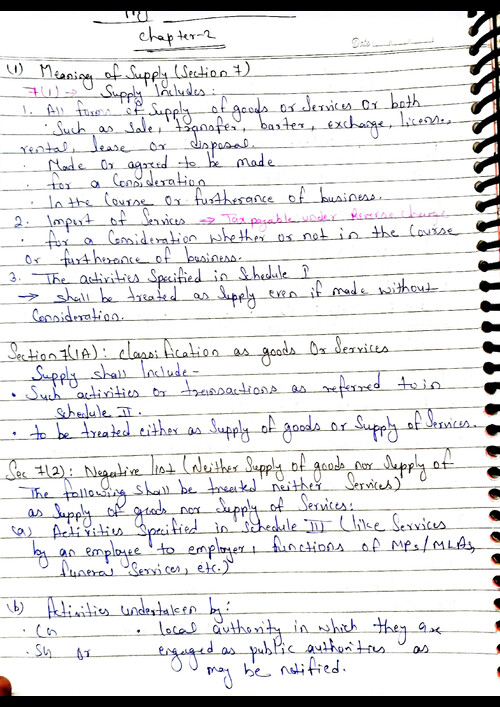 Chapter-2
Date
(1) Meaning of Supply (Section 7)
7(1) → Supply Includes:
1. All forms of Supply of goods or Services or both
· Such as Sale, transfer, barter, exchange, license,
rental, lease or disposal.
· Made or agreed to be made
· for a Consideration
· In the Course or furtherance of business.
2. Import of Services → Tax payable under Reverse Charge
· for a Consideration whether or not in the Course
or furtherance of business.
3. The activities Specified in Schedule I
→ Shall be treated as Supply even if made without
Consideration.
Section 7(1A): Classification as goods Or Services
Supply shall Include-
• Such activities or transactions as referred to in
Schedule II.
• to be treated either as Supply of goods or Supply of Services.
Sec 7(2): Negative list (Neither Supply of goods nor Supply of
Services)
The following Shall be treated neither
as Supply of goods nor Supply of Services:
(a) Activities Specified in Schedule III (like Services
by an employee to employer, functions of MPs/MLAs,
funeral Services, etc.)
(b) Activities undertaken by:
· CG · local authority in which they are
· SG or engaged as public authorities as
may be notified.